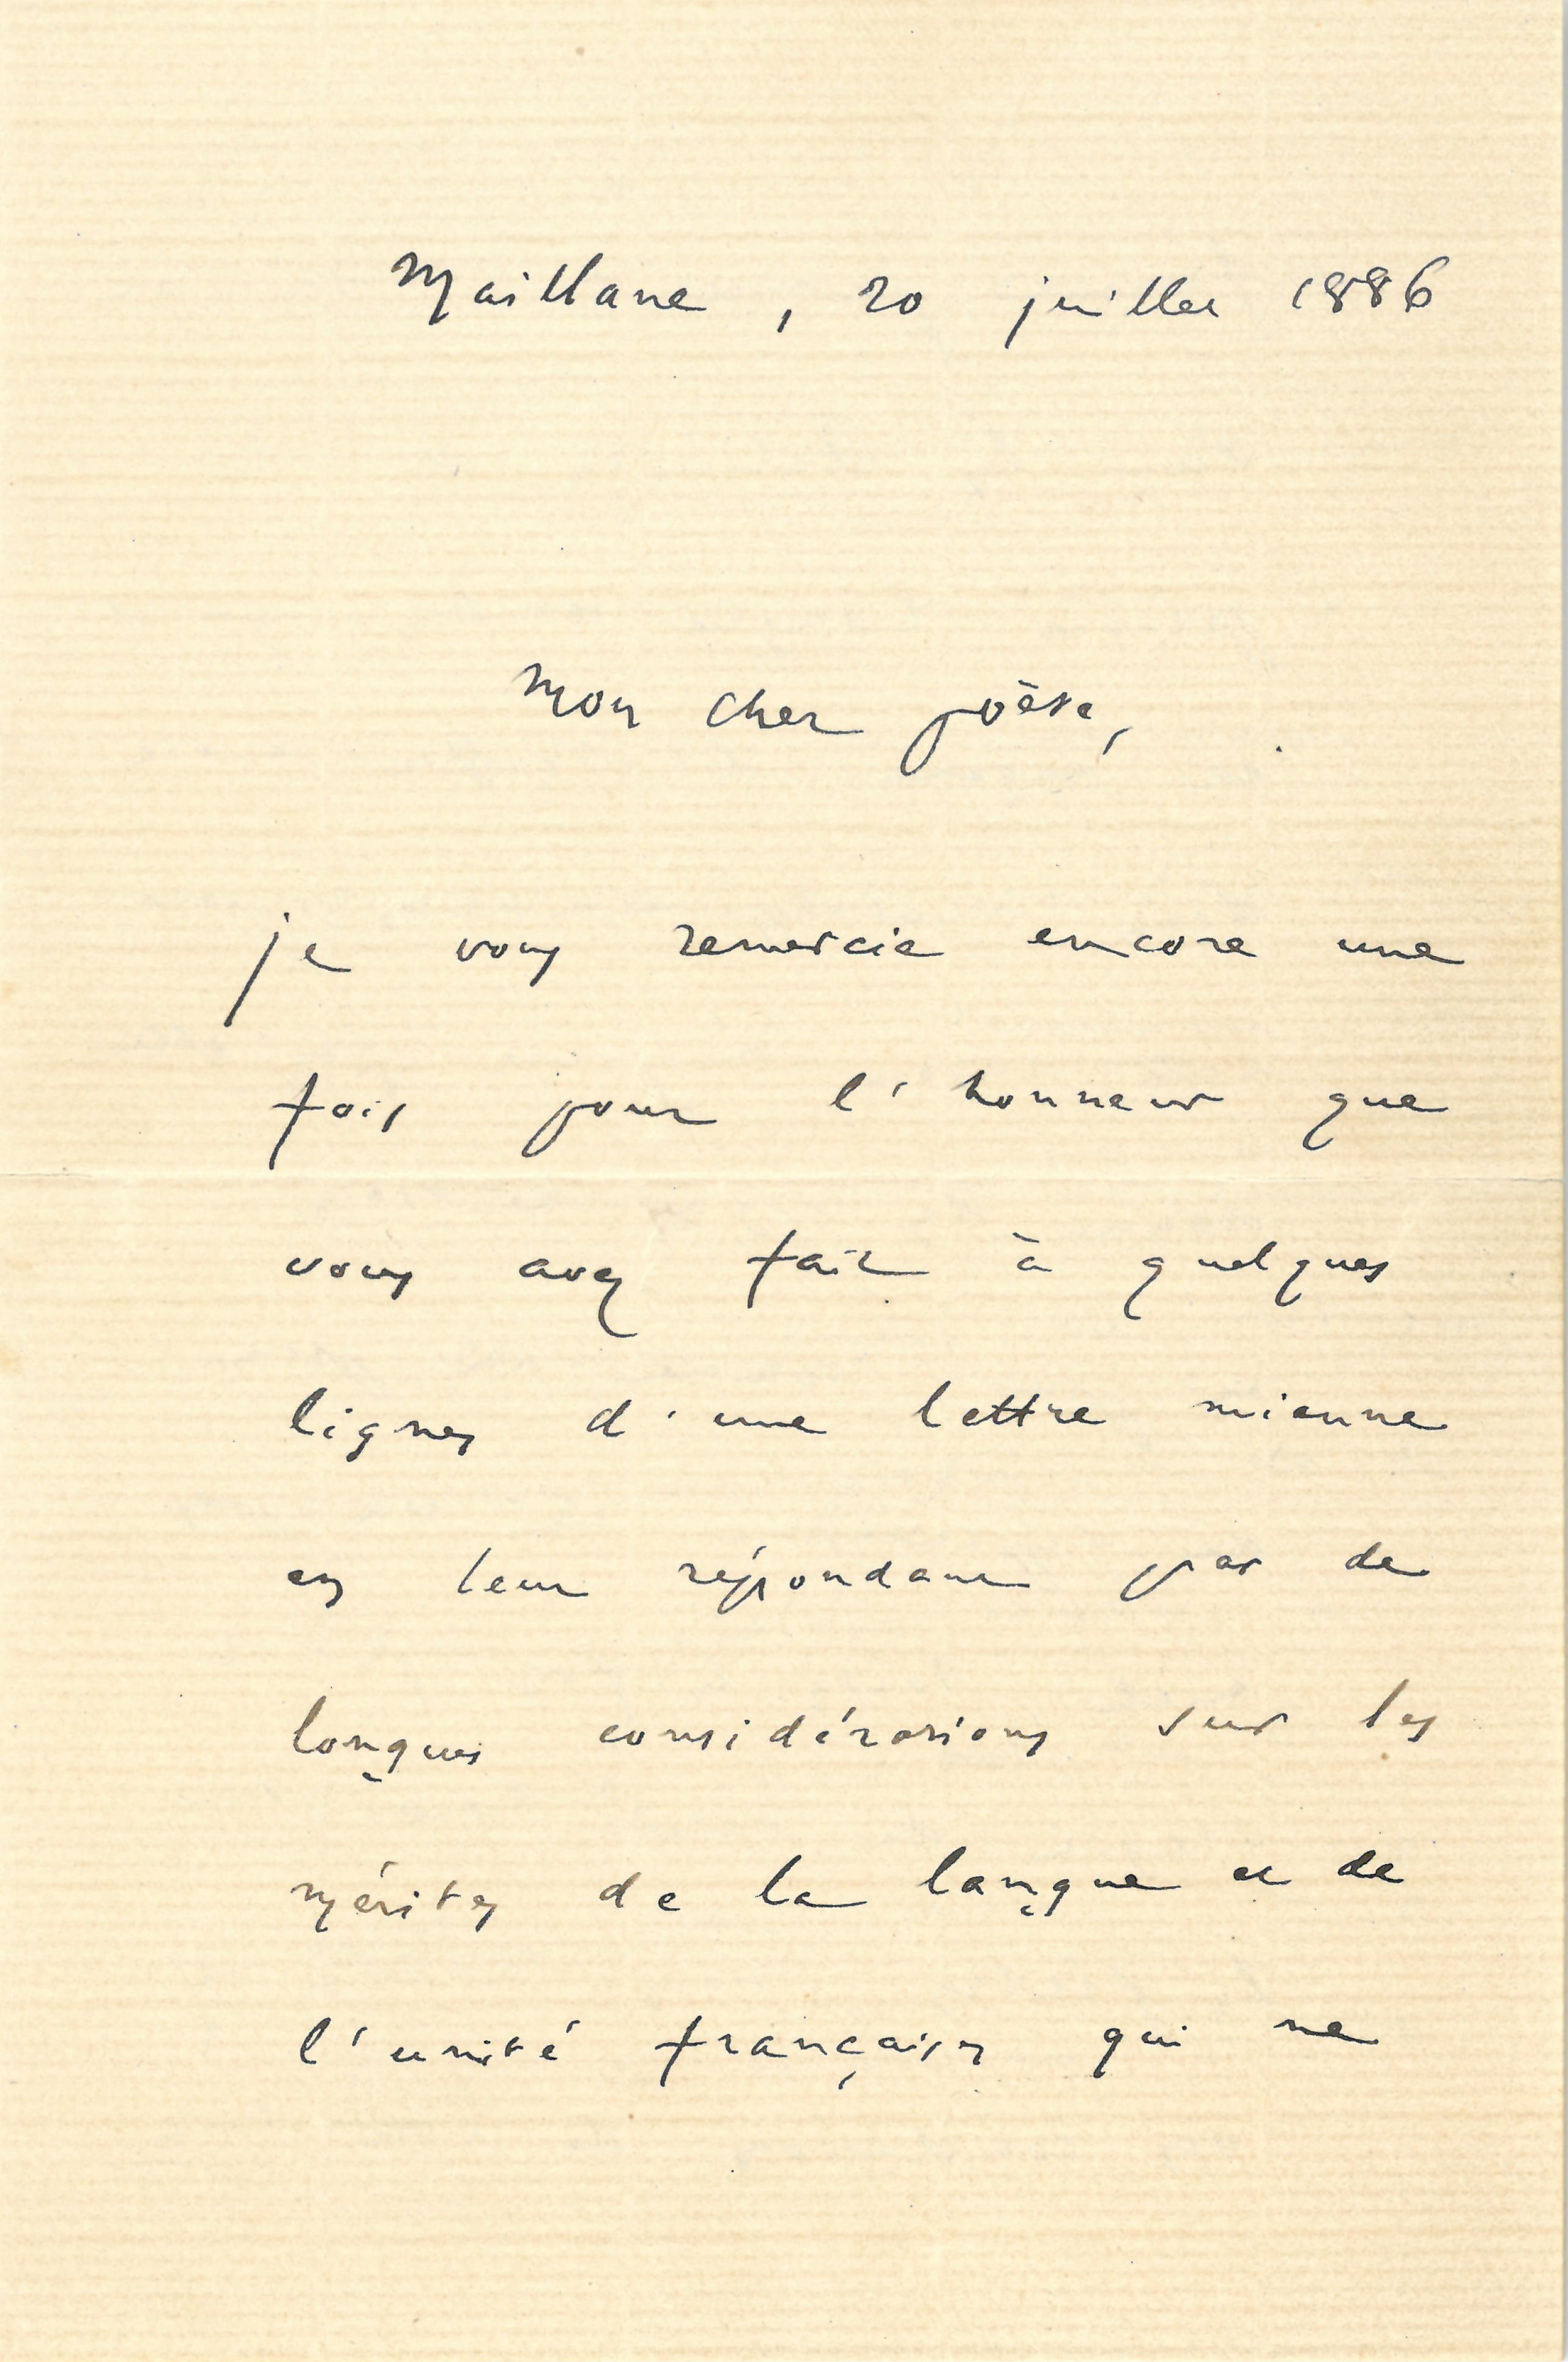 Maillane, 20 juillet 1886
Mon cher poète,
je vous remercie encore une
fois pour l'honneur que
vous avez fait à quelques
lignes d'une lettre mienne
en leur répondant par de
longues considérations sur les
mérites de la langue et de
l'unité françaises qui ne